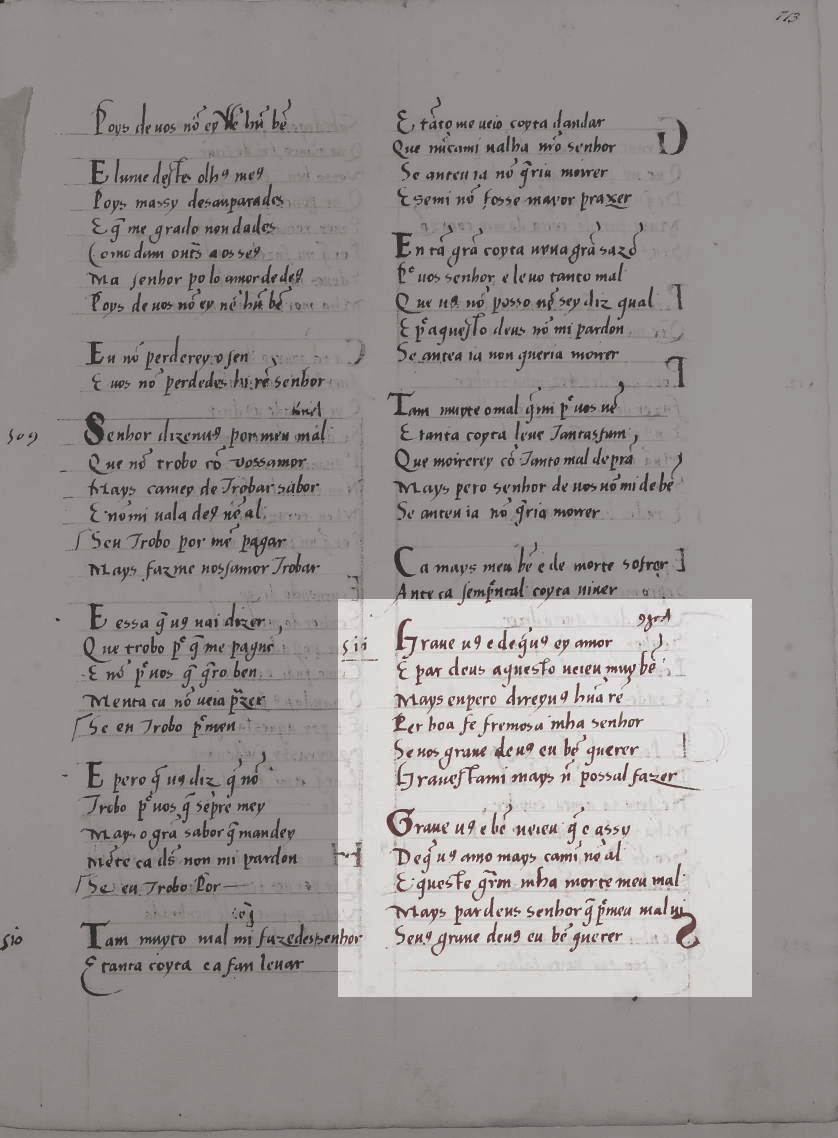 713
Poys de uos nõ ey nẽ hũ bẽ
E lume destes olhꝯ meꝯ
Poys massy desanparades
E q̃ me grado non dades
Como dam outrꝯ aos seꝯ
Ma senhor polo amor de deꝯ
Poys de uos nõ ey nẽ hũ bẽ
Eu nõ perderey o sen
E uos nõ perdedes hi rẽ senhor
509
Senhor dizenuꝯ por meu mal
Que nõ trobo cõ uossamor
Mays camey de Trobar sabor
E nõ mi uala deꝯ nẽ al
Seu Trobo por mẽ pagar
Mays faz me uossamor Trobar
E essa q̃ uꝯ uai dizer
Que trobo p̃ q̃ me pagué
E nõ p̃ uos q̃ q̃ro ben
Menta ca nõ ueia p̃zer
Se eu Trobo p̃ men
E pero q̃ uꝯ diz q̃ nõ
Trobo p̃ uos q̃ sẽpre mey
Mays o grã sabor q̃ mandey
Mẽte ca ds̃ non mi pardon
Se eu Trobo Por
510
Tam muyto mal mi fazedes senhor
E tanta coyta e afan leuar
E tãto me ueio coyta dandar
Que nũcami ualha nrõ senhor
Se anteu ia nõ q̃ria morrer
E semi nõ fosse mayor prazer
En tã grã coyta uyua grã sazõ
P̃ uos senhor e leuo tanto mal
Que uꝯ nõ posso nẽ sey diz qual
E p̃ aquesto deus nõ mi pardon
Se antea ia non queria morrer
Tam muyto o mal q̃ mi p̃ uos uẽ
E tanta coyta leue Tantasfam
Que moirerey cõ Tanto mal de prã
Mays pero senhor de uos nõ mi dê bẽ
Se anteu ia nõ q̃ria morrer
Ca mays meu bẽ e de morte sofrer
Ante ca semp̃ ental coyta uiuer
511
Graue uꝯ e deq̃ uꝯ ey amor
E par deus aquesto ueieu muy bẽ
Mays enpero direyuꝯ hũa rẽ
Per boa fe fremosa mha senhor
Se uos graue deuꝯ eu bẽ querer
Grauestami mays ñ possal fazer
Graue uꝯ e bẽ ueieu q̃ e assy
Deq̃ uꝯ amo mays cami nẽ al
E queste grãm mha morte meu mal
Mays par deus senhor q̃ p̃ meu mal ui
Seuꝯ graue deuꝯ eu bẽ querer